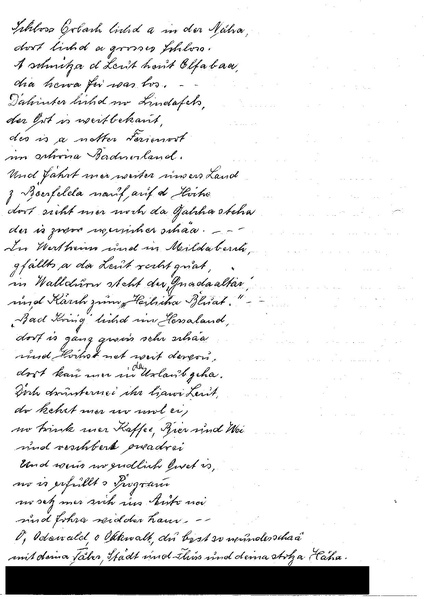 Schloss Erbach lichd a in der Näha,
dort lichd a grosses Schloss.
A schnitza d Leut heut Elfabaa,
dia henn fei was los. - -
Dahinter lichd no Lindafels,
der Ort is weitbekannt,
des is a netter Ferienort
im schöna Badnerland.
Und fährt mer weiter unser Land
z Beerfelda nauf, auf d Höhe
dort sieht mer noch da Galcha steha
der is zwar wenicher schäa. - - -
In Wertheim und in Mildaberch,
gfällts a da Leut recht guat,
in Walldürn steht der "Gnadaaltär"
und Kärch zum "Heilicha Bluat." - -
"Bad König" lichd im Hessaland,
dort is ganz gwiss sehr schäa
und Höchst net weit dervou,
dort kan mer in da Urlaub geha.
Doch drunternei ihr liawi Leut,
do kehrt mer no mol ei,
no trink mer Kaffee, Bier und Wei
und veschbert owadrei
Und wenn no endlich Owet is,
no is erfüllt s Program
no setz mer sich im Auto nei
und fohra widder ham. - - -
O, Odawald, o Okwalt, du bist so wunderschäa
mit deina Täler, Städt und Flüss und deina stolza Häha.